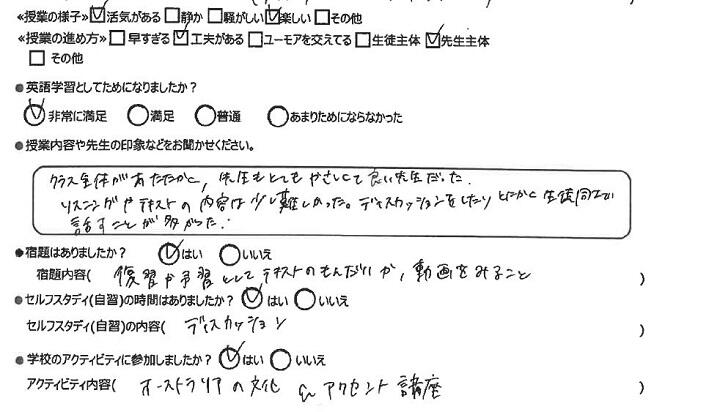 ≪授業の様子≫☑活気がある□静か□騒がしい☑楽しい□その他
≪授業の進め方≫□早すぎる☑工夫がある□ユーモアを交えてる□生徒主体☑先生主体
□ その他
●英語学習としてためになりましたか？
☑非常に満足 ○満足 ○普通 ○あまりためにならなかった
●授業内容や先生の印象などをお聞かせください。
クラス全体があたたかく, 先生もとてもやさしくて良い先生だった.
リスニングやテキストの内容は少し難しかった。ディスカッションをしたりとにかく生徒同士で
話すことが多かった.
●宿題はありましたか？ ☑はい ○いいえ
宿題内容( 復習や予習としてテキストのもんだいか, 動画をみること )
●セルフスタディ(自習)の時間はありましたか？☑はい ○いいえ
セルフスタディ(自習)の内容( ディスカッション )
●学校のアクティビティに参加しましたか？☑はい ○いいえ
アクティビティ内容( オーストラリアの文化 & アクセント講座 )